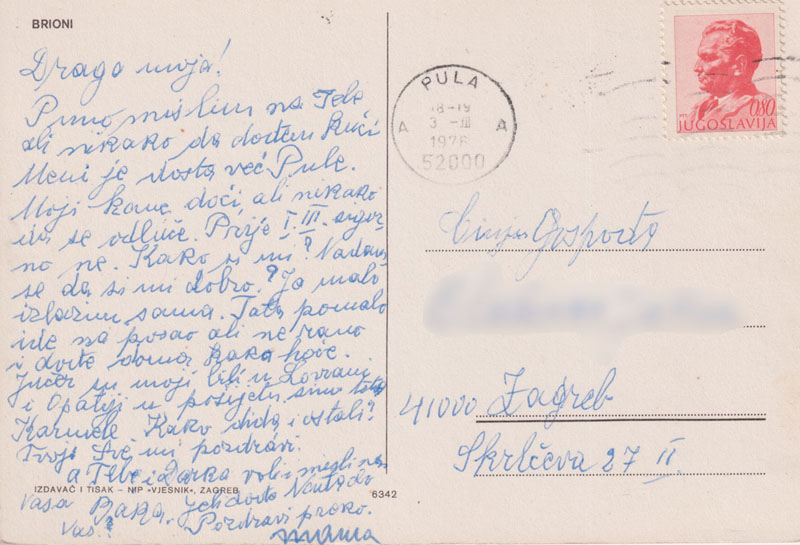 BRIONI
Draga moja!
Puno mislim na Tebe
ali nikako da dođem kući
Meni je dosta već Pule.
Moji kane doći ali nikako
da se odluče. Prije I. III. sigur
no ne. Kako si mi? Nadam
se da si mi dobro? Ja malo
izlazim sama. Tata pomalo
ide na posao ali ne rano
i dođe doma kako hoće.
Jučer su moji bili u Lovranu
i Opatiji u posjetu kod tete
Karmele Kako dida i ostali?
Tvoje Sve mi pozdravi.
a Tebe i Darka voli i misli na
Vaša Baka. Jeli dođe
Vas? Pozdravi preko.
mama
IZDAVAČ I TISAK – NIP »VJESNIK«, ZAGREB
6342
PULA
18-19
3 -III
1976
A A
52000
0,80
JUGOSLAVIJA
Gospođa
41000 Zagreb
Skrlčeva 27 II